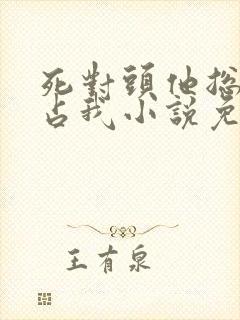 死對頭他總
占我小説免
王有泉